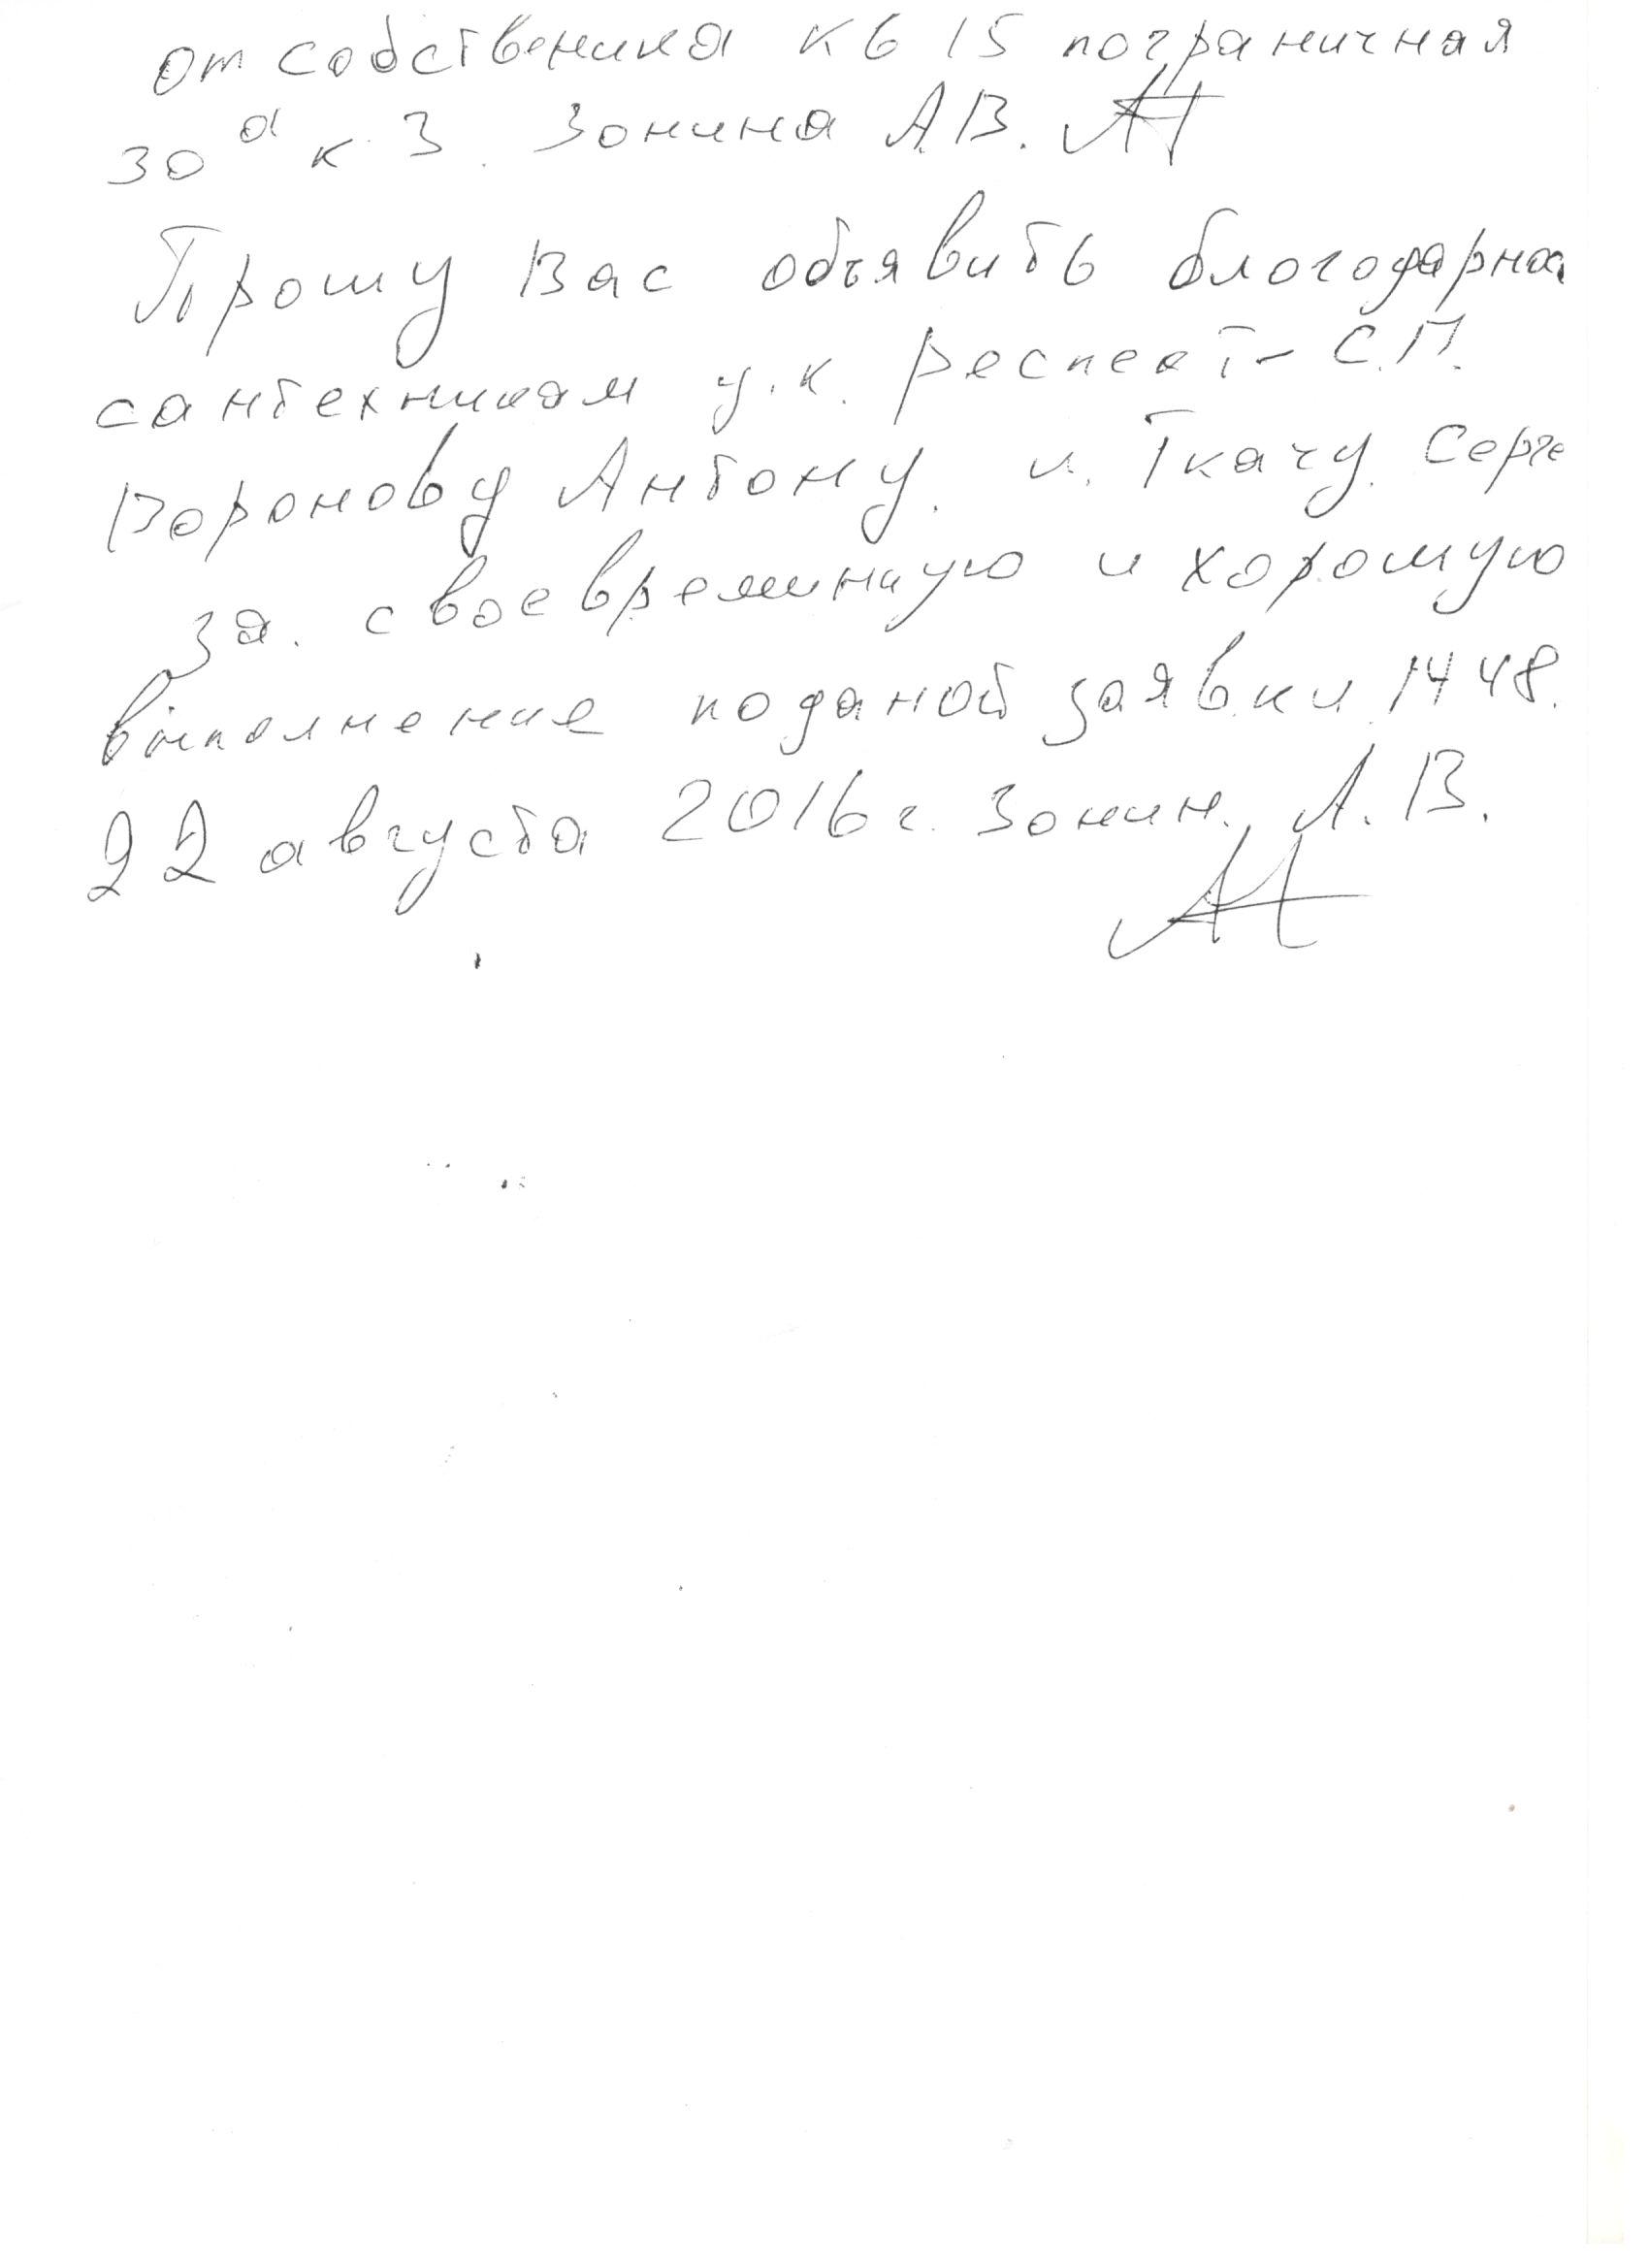 от собственика кв 15 пограничная
30 а к. 3. Зонина А.В.
Прошу Вас объявить благодарнос
сантехникам у.к. респект-С.П.
Воронову Антону. и. Ткачу. Серге
за. своевременную и хорошую
выполнение поданой заявки 1448.
22 августа 2016 г. Зонин. А.В.